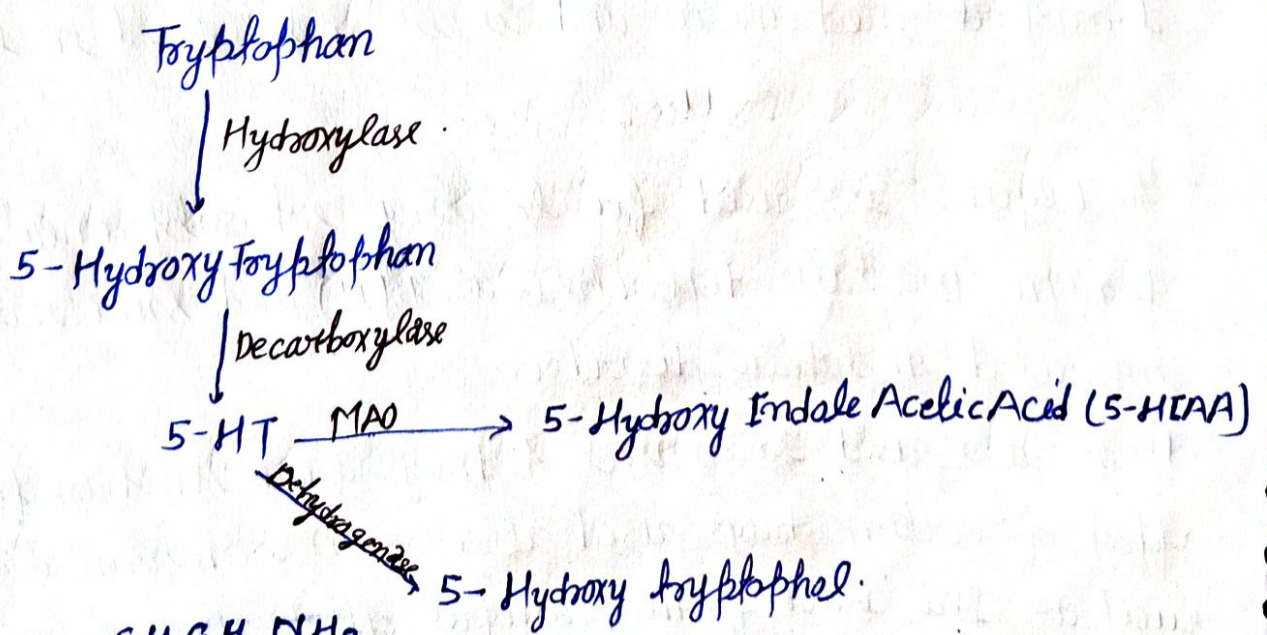 Tryptophan
Hydroxylase
5-Hydroxy Tryptophan
Decarboxylase
5-HT MAO 5-Hydroxy Indole Acetic Acid (5-HIAA)
Dehydragenase
5-Hydroxy tryptophol.